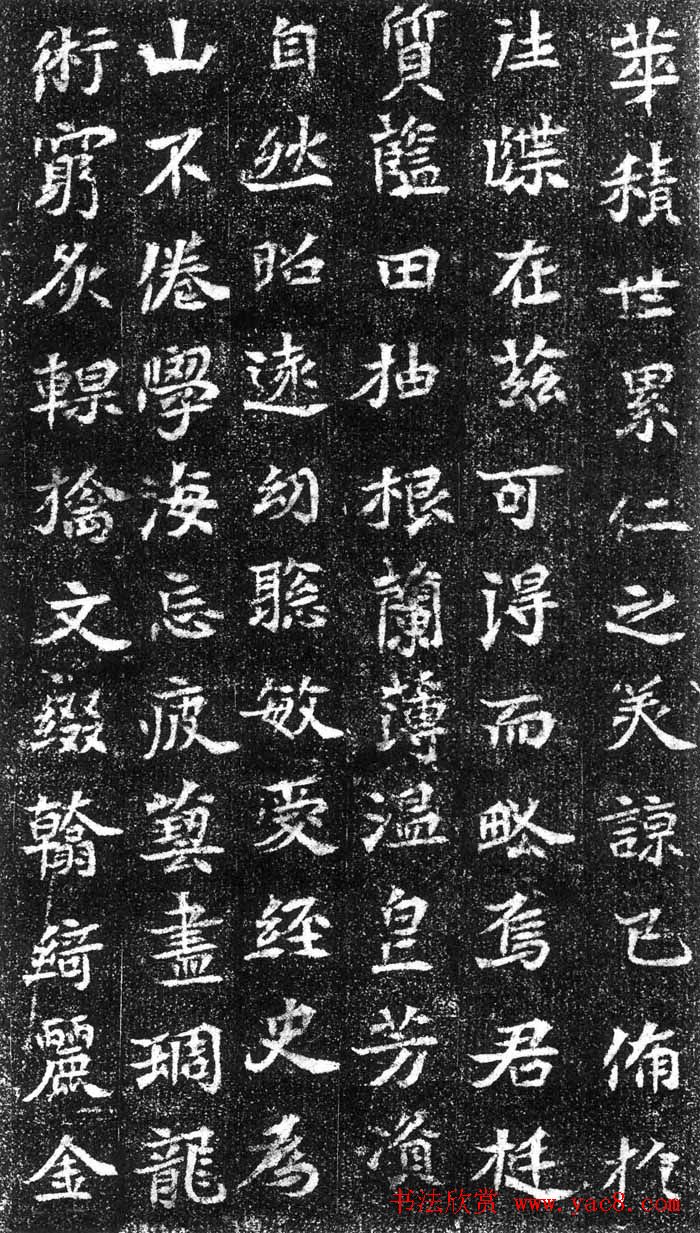 華積世累仁之美諒已備於
注諜在茲可得而略焉君挺
質藍田抽根蘭薄温皃芳資
自然昭遠幼聡敏愛經史為
山不倦學海忘疲藝盡琱龍
術窮炙輠摛文綴翰綺麗金
书法欣赏 www.yac8.com